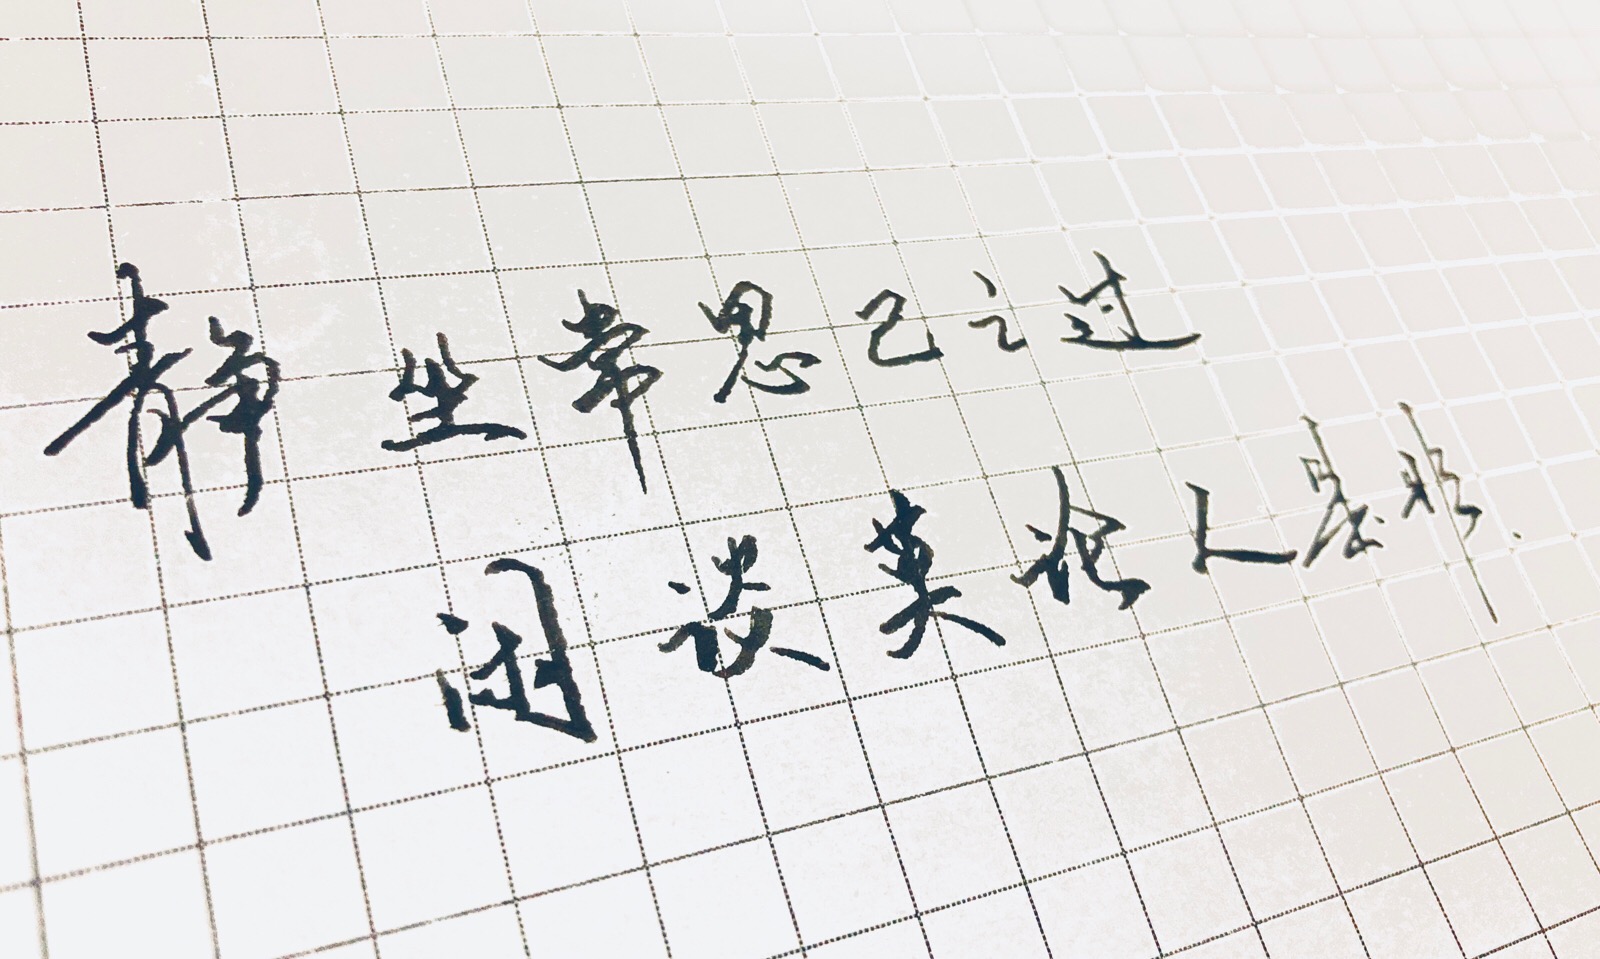 静坐常思己之过
闲谈莫论人是非.